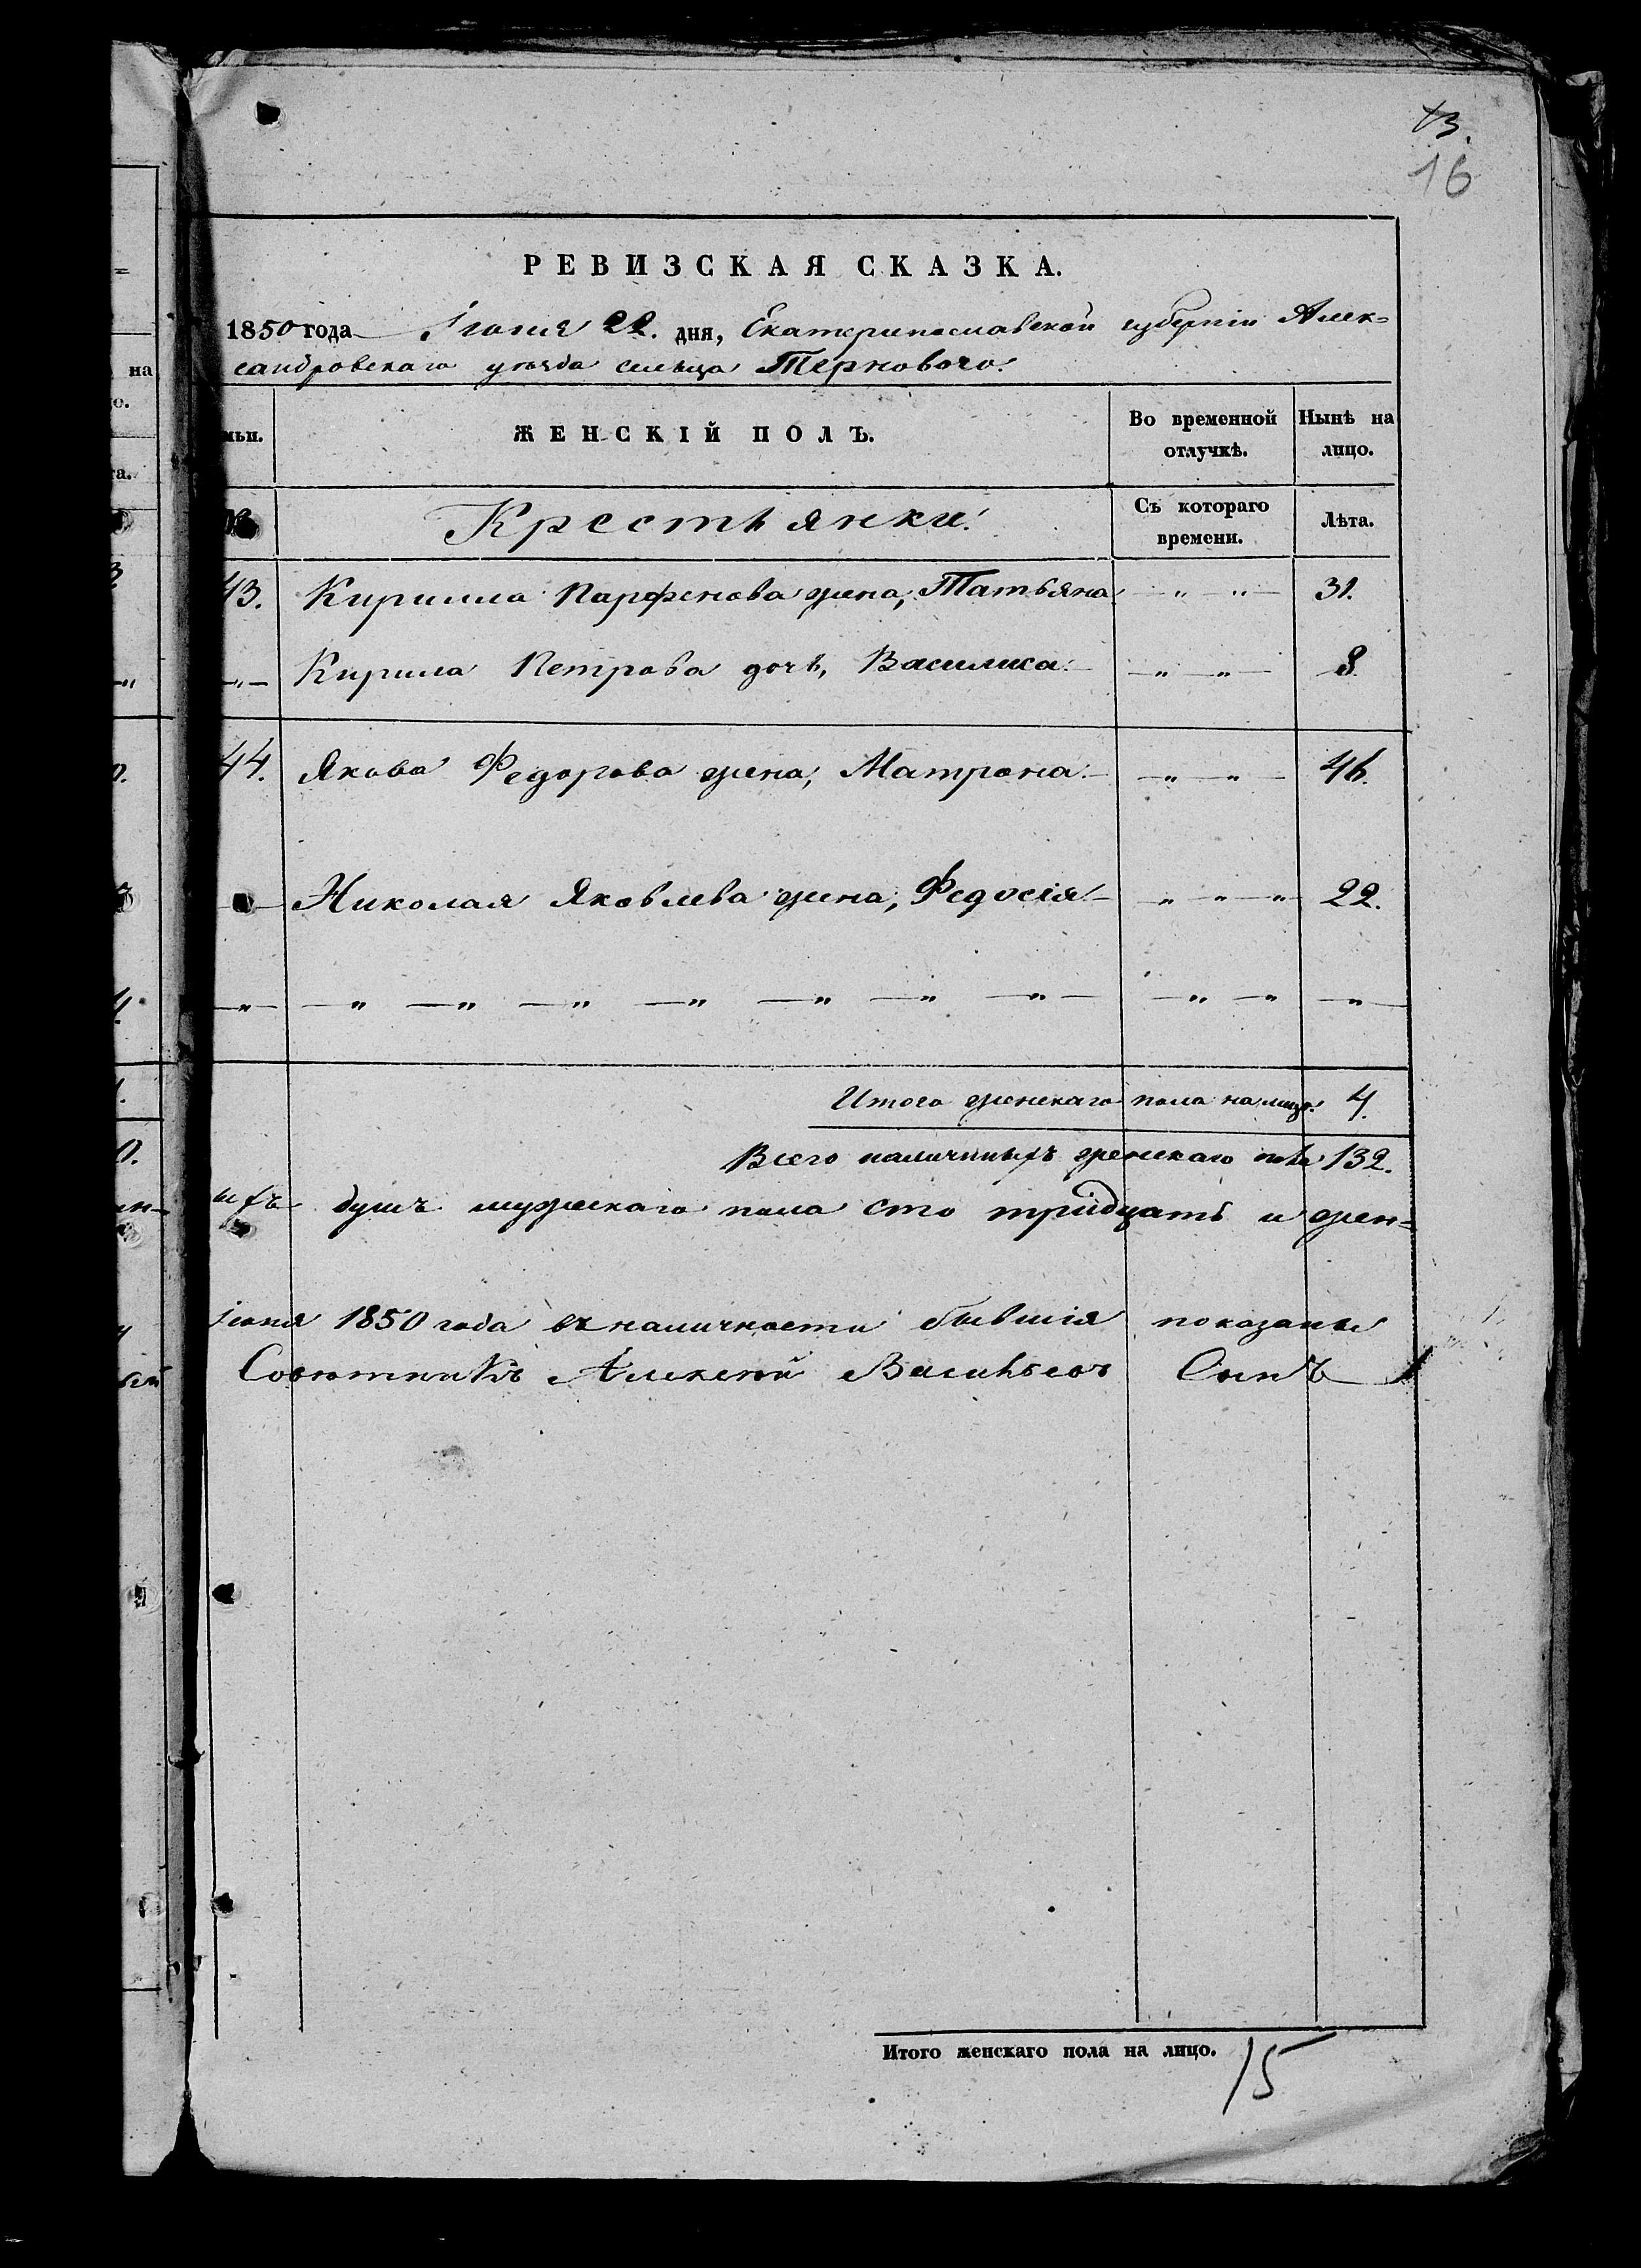 13.
16
РЕВИЗСКАЯ СКАЗКА.
1850 года Іюня 22. дня, Екатеринославской губерніи Алек=
сандровскаго уѣзда сельца Терноваго.
на
мьи.
ЖЕНСКІЙ ПОЛЪ.
Во временной отлучкѣ.
Нынѣ на лицо.
Крестьянки.
Съ котораго времени.
Лѣта.
43. Кирилла Парфенова жена, Татьяна. — „ — „ — 31.
— „ — Кирила Петрова дочь, Василиса. — „ — „ — 8.
44. Якова Федорова жена, Матрона. — „ — „ — 46.
Николая Яковлева жена, Федосія. — „ — „ — „ 22.
— „ — — „ — „ — „ — „ — „ — „ — „ — — „ — „ — „ —
Итого женскаго пола на лицо. 4.
Всего наличныхъ женскаго пола 132.
ыхъ душъ мужескаго пола сто тридцать и жен=
Іюня 1850 года въ наличности бывшія показаны
Совѣтникъ Алексѣй Васильевъ Сынъ
Итого женскаго пола на лицо. 15